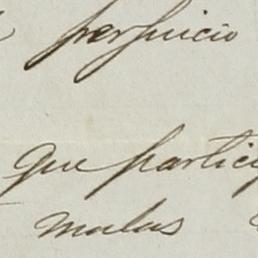 perjuicio
que partici
malas